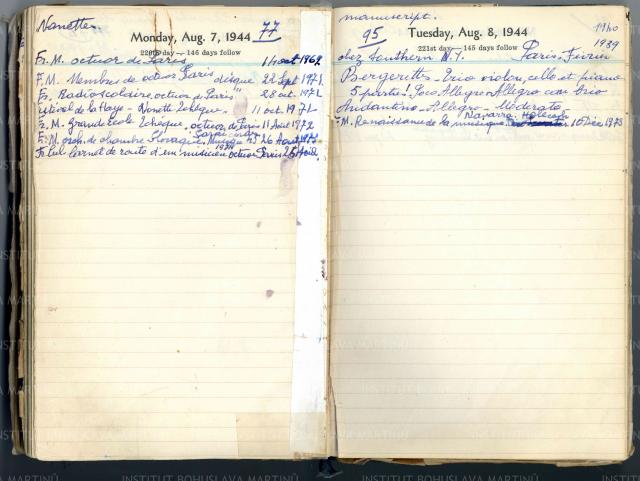 Nonetten
Monday, Aug. 7, 1944 77
220th day — 146 days follow
Fr. M. octuor de Paris 1 août 1962
F. M. Membres de octuor Paris disque 22 Sept 1971
Fr. Radioscolaire, octuor de Paris" 28 oct. 1971
Festival de la Haye - Nonette tchèque. 11 oct. 1971
Fr. M. Grande école tchèque, octuor de Paris 11 Août 1972
Fr. M. orch. de chambre Slovaque. 26 Août
Fr. Cul Carnet de route d'un musicien octuor Paris
manuscript.
1940
1939
95 Tuesday, Aug. 8, 1944
221st day — 145 days follow
chez Southern N.Y. Paris.
Bergerettes - Trio violon, cello et piano
5 parties: Poco Allegro - Allegro con brio
Andantino - Allegro - Moderato
Navarra
F. M. Renaissance de la musique 10 Dec 1973
INSTITUT BOHUSLAVA MARTINŮ